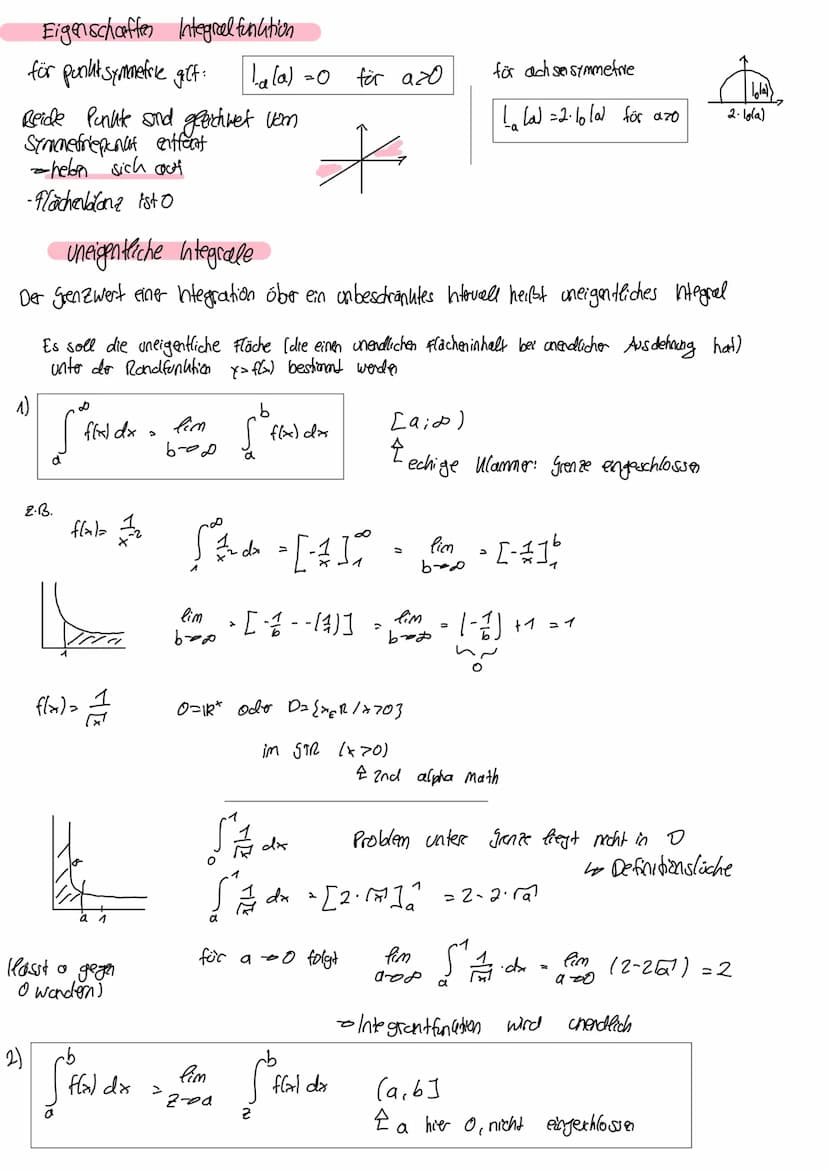 Eigenschaften Integralfunktion
für punktsymmetrie gilt: I₋ₐ(a) = 0 für a≥0
für achsensymmetrie
I₋ₐ(a) = 2·I₀(a) für a≥0
I₀(a)
2·I₀(a)
Beide Punkte sind gleichweit vom
Symmetriepunkt entfernt
→ heben sich auf
- Flächenbilanz ist 0
uneigentliche Integrale
Der Grenzwert einer Integration über ein unbeschränktes Intervall heißt uneigentliches Integral
Es soll die uneigentliche Fläche (die einen unendlichen Flächeninhalt bei unendlicher Ausdehnung hat)
unter der Randfunktion y = f(x) bestimmt werden
1) ∫ₐ^∞ f(x) dx = lim b→∞ ∫ₐ^b f(x) dx [a;∞)
↑ eckige Klammer: Grenze eingeschlossen
z.B.
f(x) = 1/x⁻² ∫₁^∞ 1/x² dx = [-1/x]₁^∞ = lim b→∞ = [-1/x]₁^b
lim b→∞ = [-1/b - -(1/1)] = lim b→∞ = (-1/b) + 1 = 1
0
1
f(x) = 1/√x D=ℝ⁺ oder D={x∈ℝ/x>0}
im GTR (x>0)
↑ 2nd alpha math
∫₀^1 1/√x dx Problem untere Grenze liegt nicht in D
↳ Definitionslücke
∫ₐ^1 1/√x dx = [2·√x]ₐ^1 = 2-2·√a
a 1
(lässt a gegen
0 wandern)
für a→0 folgt lim a→∞ ∫ₐ^1 1/√x · dx = lim a→0 (2-2√a) = 2
→ Integrantfunktion wird unendlich
2) ∫ₐ^b f(x) dx = lim z→a ∫_z^b f(x) dx (a,b]
↑ a hier 0, nicht eingeschlossen